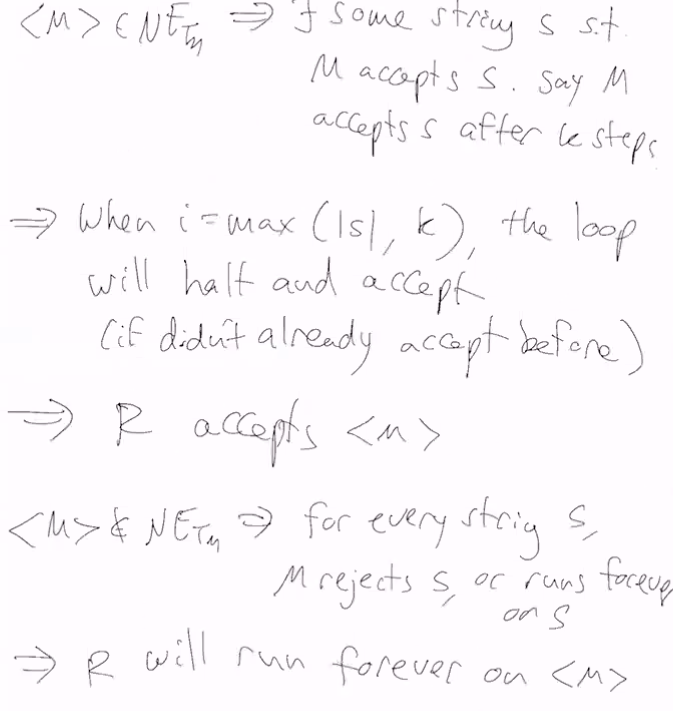 <M> ∈ NE_TM ⇒ ∃ some string s s.t.
M accepts s. Say M
accepts s after k steps
⇒ When i = max (|s|, k), the loop
will halt and accept
(if didn't already accept before)
⇒ R accepts <M>
<M> ∉ NE_TM ⇒ for every strig s,
M rejects s, or runs forever
on s
⇒ R will run forever on <M>